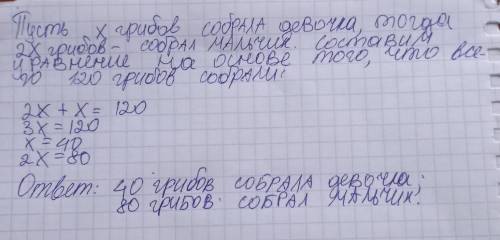 Пусть x грибов собрала девочка, тогда
2x грибов - собрал мальчик. составим
уравнение на основе того, что все-
го 120 грибов собрали:
2x + x = 120
3x = 120
x = 40
2x = 80
Ответ: 40 грибов собрала девочка;
80 грибов собрал мальчик.